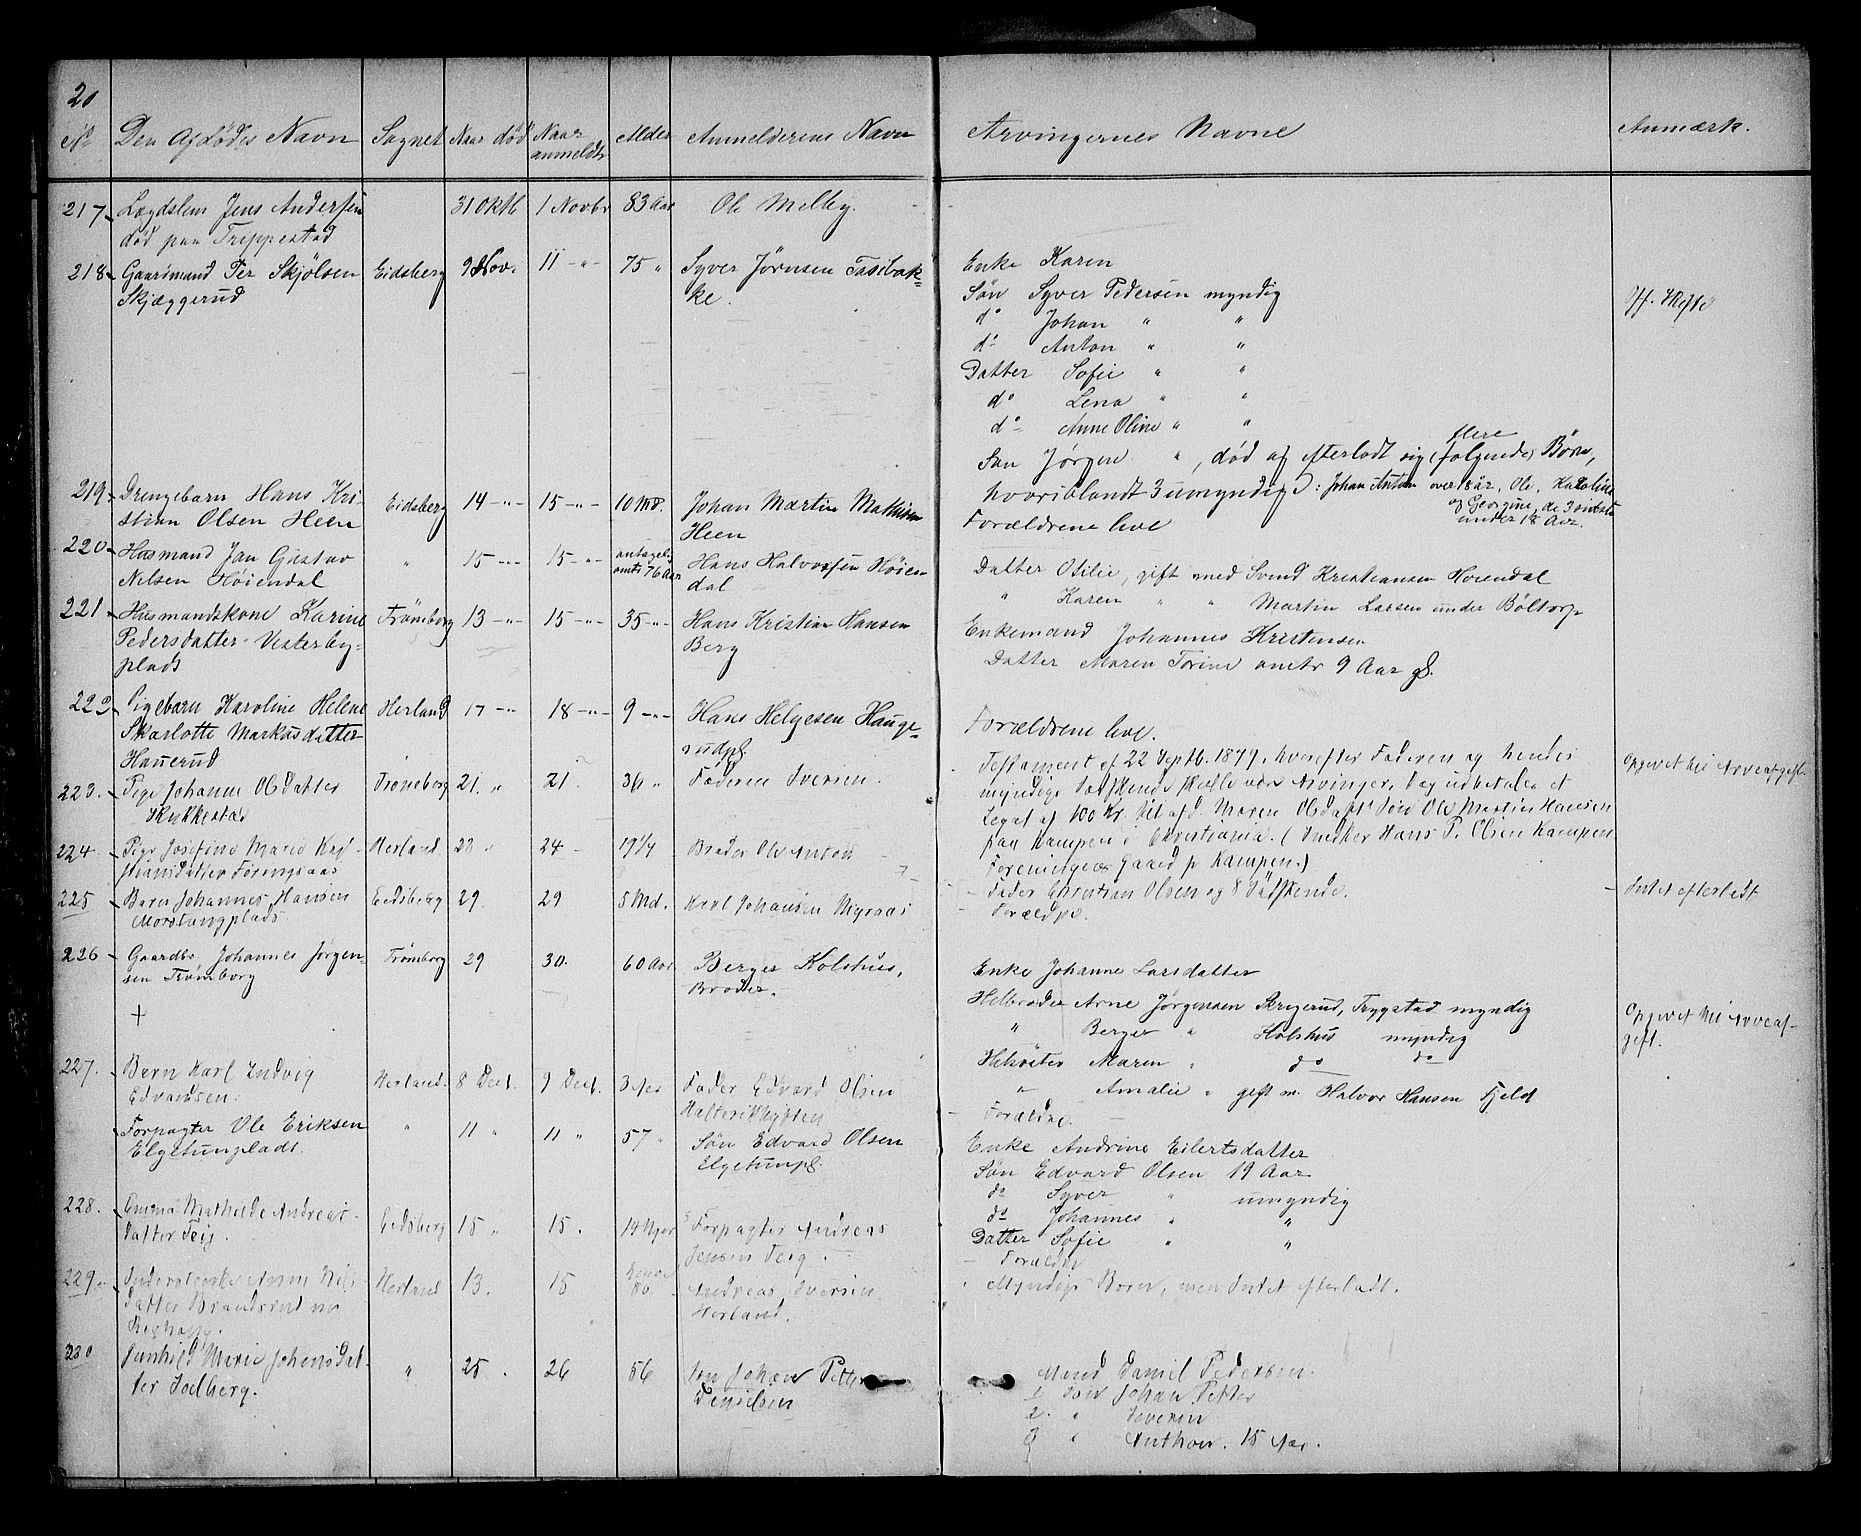 20
No Den Afdødes Navn Sognet Naar død Naar anmeldt Alder Anmelderens Navn Arvingernes Navne Anmærk.
217 Lægdslem Jens Andersen 31 Oktb 1 Novbr 83 Aar Ole Melby.
død paa Trippestad
218 Gaardmand Per Skjølsen Eidsberg 9 Nov. 11 -"- 75 "
Skjæggerud
Syver Jørnsen Tasibak-
ke.
Enke Karen
Søn Syver Pedersen myndig
do Johan " "
do Anton " "
Datter Sofie " "
do Lena " "
do Anne Oline " "
flere
Søn Jørgen ", død og efterladt sig (følgende) Børn,
hvoriblandt 3 umyndige: Johan Anton over 18 år, Ole, Karoline
og Georgine, de 3 sidste
under 18 Aar.
Off. Skifte
219 Drengebarn Hans Kri-
stian Olsen Heen Eidsberg 14 -"- 15 -"- 10 Md. Johan Martin Mathisen
Heen
Forældrene leve
220 Husmand Jan Gustav " 15 -"- 15 -"- antagel.
Nilsen Høiendal omtr 76 Aar Hans Halvorsen Høien-
dal
Datter Otilie, gift med Svend Kristiansen Hoiendal
" Karen " " Martin Larsen under Bøltorp
221 Husmandskone Karine Trømborg 13 -"- 15 -"- 35 -"- Hans Kristian Hansen
Pedersdatter Vesterby- Berg
plads
Enkemand Johannes Kristensen
Datter Maren Torine omtr 9 Aar gl.
222 Pigebarn Karoline Helene Herland 17 -"- 18 -"- 9 -"- Hans Helgesen Hauge-
Skarlotte Markusdatter rudpl
Hauerud
Forældrene leve.
223. Pige Johanne Olsdatter Trømborg 21. " 21. 36 " Faderen Iversen.
Skukkestad
Testament af 22 Septb. 1879, hvorefter Faderen og hendes
myndige Sødskende skulle være Arvinger, dog udbetales et
Legat af 100 Kr. til afd. Maren Olsdatts Søn Ole Martin Hansen
paa Kampen i Christiania. (Snedker Hans P. Olsen Kampen
Foreningens Gaard p. Kampen.)
Opgivet til Arveafgift.
224. Pige Josefine Marie Kri- Herland 23 " 24 - 19 1/4 Broder Ole Anton
stiansdatter Foringsaas
- Fader Christian Olsen og 8 Sødskende.
Intet efterladt
225 Barn Johannes Hansen Eidsberg 29. 29 5 Md. Karl Johansen Myraas
Morstangplads.
Forældre.
226 Gaardbr. Johannes Jørgen- Trømborg 29 30. 60 Aar Berger Kolshus,
sen Trømborg Broder.
+
Enke Johanne Larsdatter
Helbroder Arne Jørgensen Skregerud, Trygstad myndig
" Berger " Kolshus myndig
Helsøster Maren " do do
" Amalie " gift m. Halvor Hansen Fjeld
Opgivet til Arveaf-
gift.
227. Barn Karl Ludvig Herland. 8 Dect. 9 Dect. 3 Aar Fader Edvard Olsen
Edvardsen.
- Forældre.
Forpagter Ole Eriksen " 11 " 11 " 57 " Søn Edvard Olsen
Elgetunplads. Elgetunpl.
Enke Andrine Eilertsdatter
Søn Edvard Olsen 19 Aar
do Syver " umyndig
do Johannes " "
Datter Sofie " "
228. Emma Mathilde Andreas- Eidsberg 15 " 15. Forpagter Andreas
datter Teig. Jensen Teig.
- Forældre
229. Anne Nils- Herland 13. 15 80 Andreas Iversen
datter Brandsrud Herland.
Myndige Børn, men Intet efterladt.
230 Gunhild Marie Johansdat- " 25. 26 56 Søn Johan Petter
ter Solberg. Danielsen
Mand Daniel Pedersen.
1 Søn Johan Petter
2. " Severin
3 " Anthon. 15 Aar.